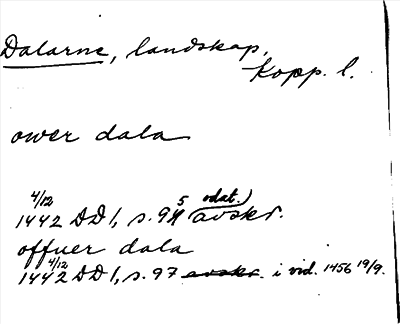 Dalarne, landskap,
Kopp. l.
ower dala
4/12 5 odat.)
1442 DD 1, s. 94 avskr.
offuer dala
4/12
1442 DD 1, s. 97 avskr. i vid. 1456 19/9.